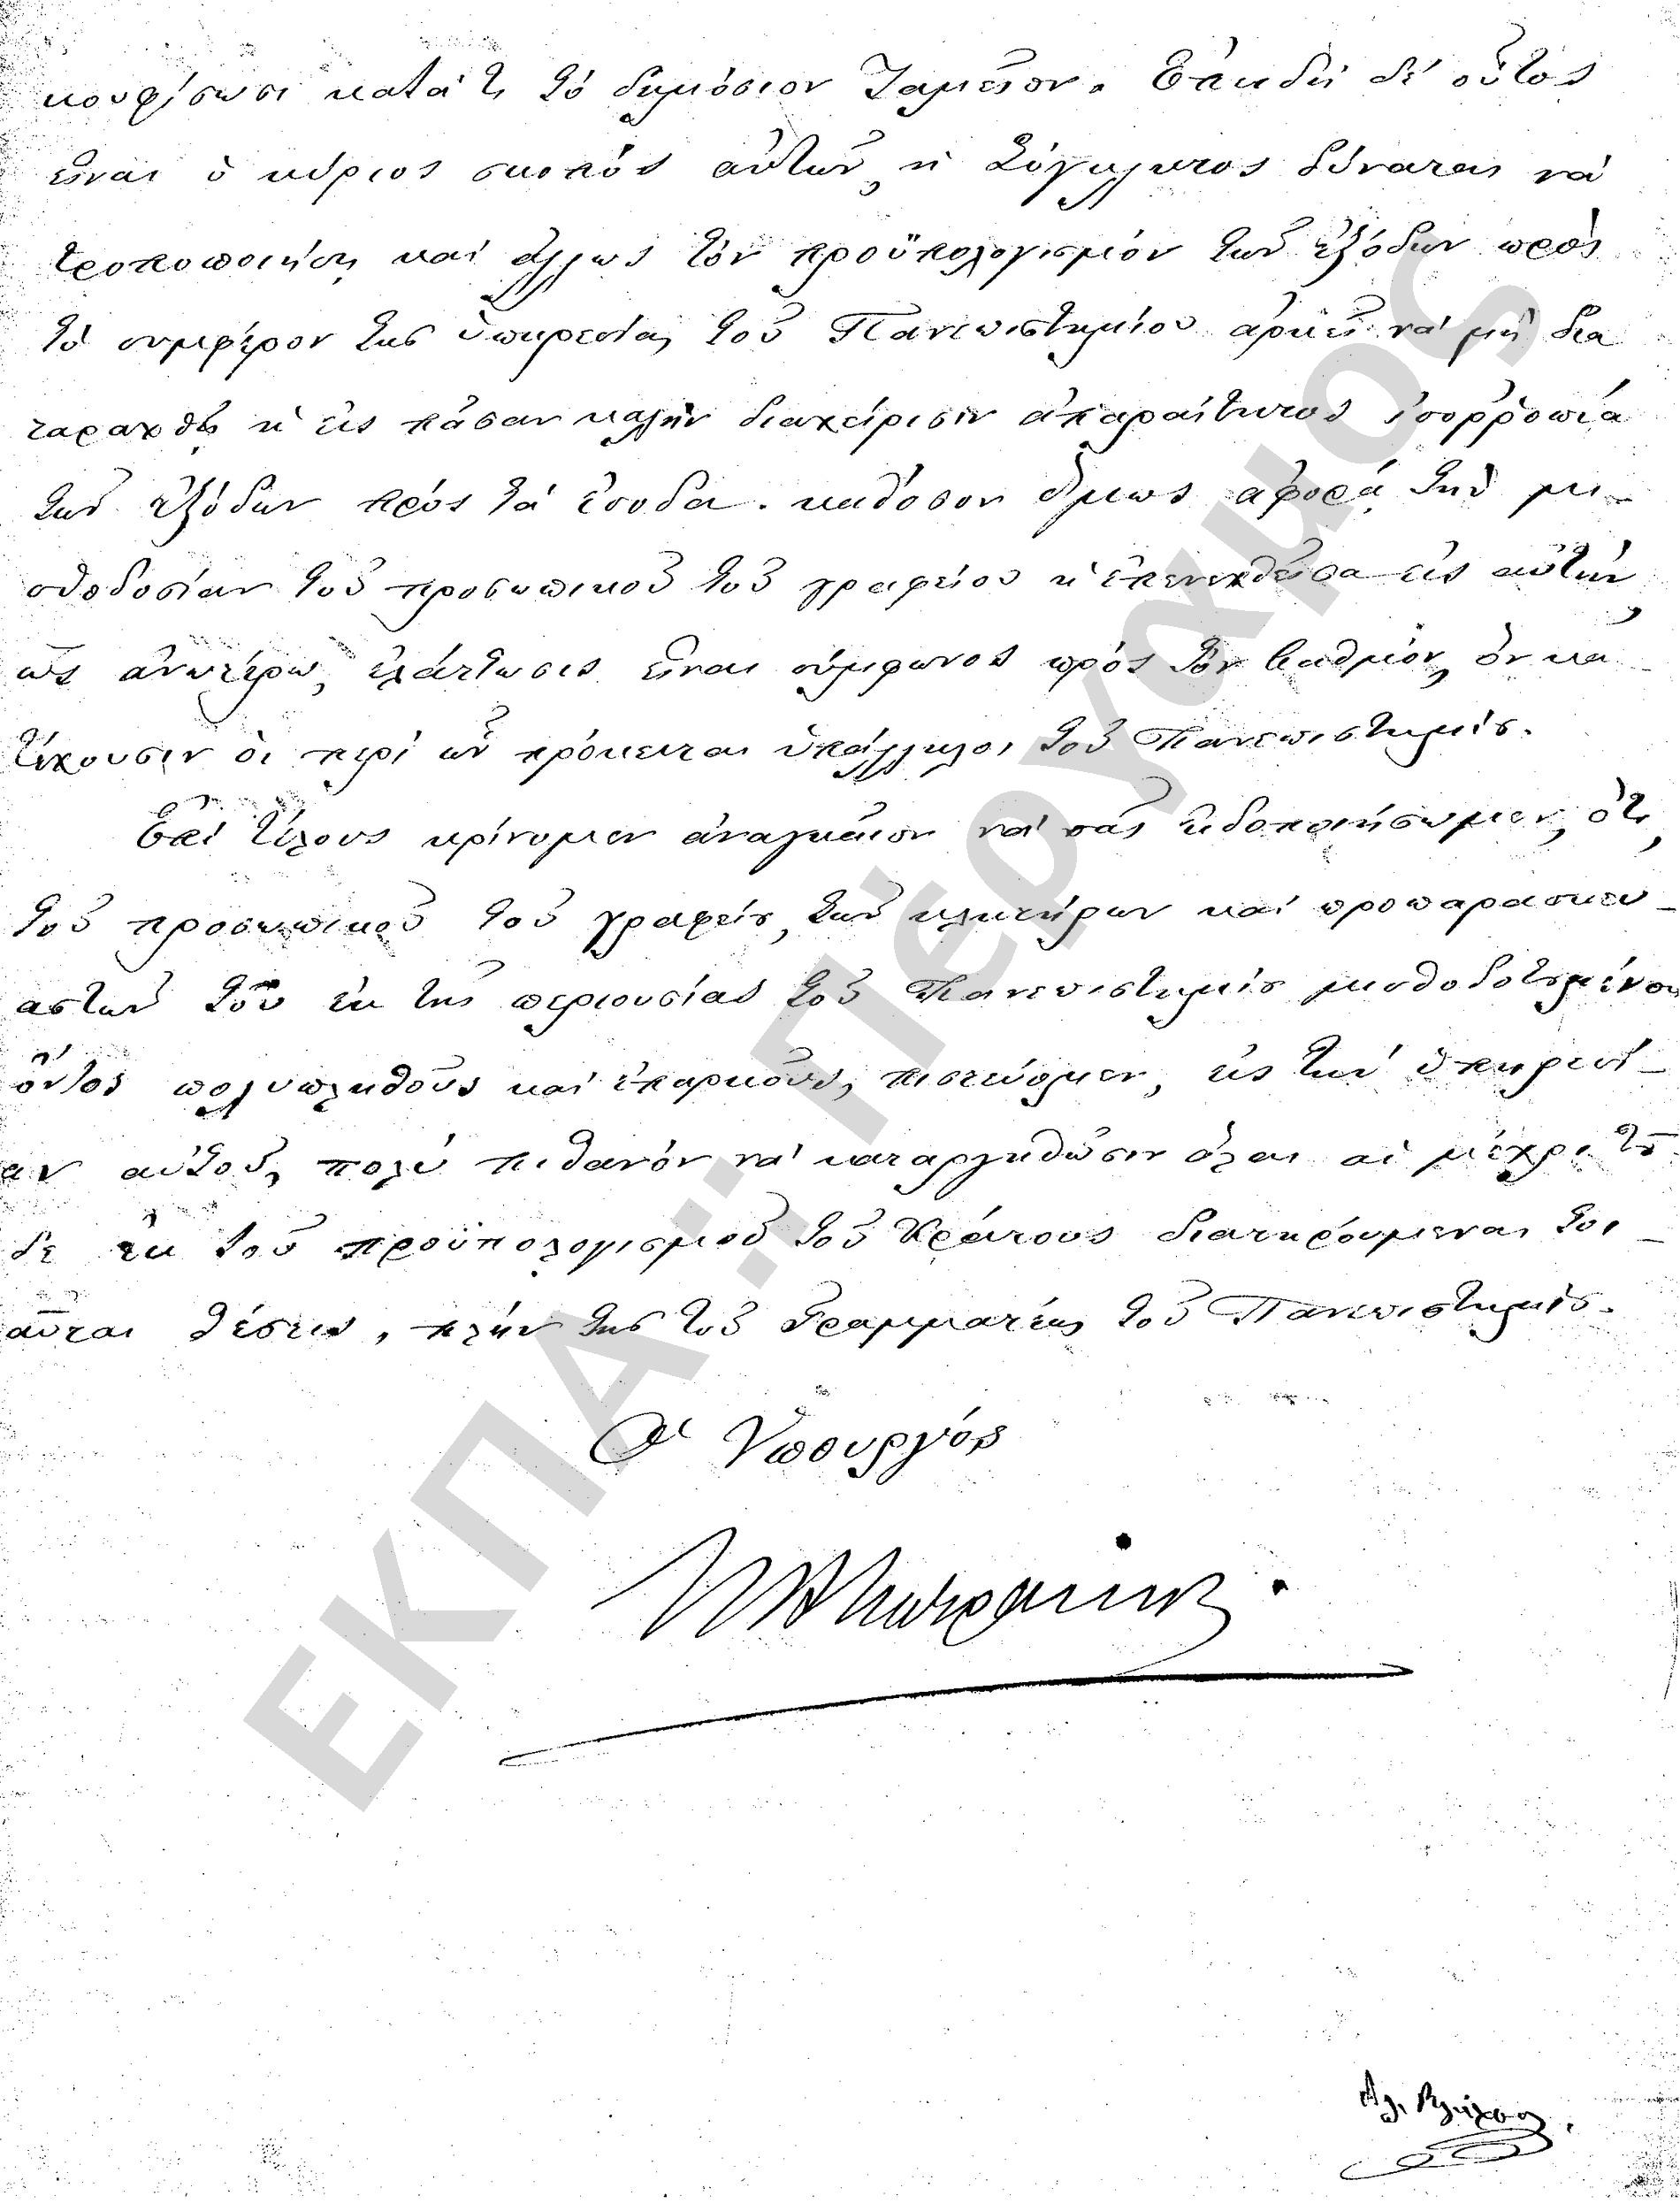 κουφίσωσι κατά τι τό δημόσιον Ταμεῖον. Ἐπειδή δέ οὗτος
εἶναι ὁ κύριος σκοπός αὐτῶν, ἡ Σύγκλητος δύναται νά
τροποποιήσῃ καί ἄλλως τόν προϋπολογισμόν τῶν ἐξόδων πρός
τό συμφέρον τῆς ὑπηρεσίας τοῦ Πανεπιστημίου ἀρκεῖ νά μή δια
ταραχθῇ ἡ εἰς πᾶσαν καλήν διαχείρισιν ἀπαραίτητος ἰσορροπία
τῶν ἐξόδων πρός τά ἔσοδα. καθόσον ὅμως ἀφορᾷ τήν μι-
σθοδοσίαν τοῦ προσωπικοῦ τοῦ γραφείου ἡ ἐπενεχθεῖσα εἰς αὐτήν
ὡς ἀνωτέρω, ἐλάττωσις εἶναι σύμφωνος πρός τόν βαθμόν, ὅν κα
τέχουσιν οἱ περί ὧν πρόκειται ὑπάλληλοι τοῦ Πανεπιστημίου.
Ἐπί τέλους κρίνομεν ἀναγκαῖον νά σᾶς εἰδοποιήσωμεν, ὅτι,
τοῦ προσωπικοῦ τοῦ γραφείου, τῶν κλητήρων καί προπαρασκευ-
αστῶν τοῦ ἐκ τῆς περιουσίας τοῦ Πανεπιστημίου μισθοδοτουμένου
ὄντος πολυπληθοῦς καί ἐπαρκοῦς, πιστεύομεν, εἰς τήν ὑπηρεσί-
αν αὐτοῦ, πολύ πιθανόν νά καταργηθῶσιν ὅλαι αἱ μέχρι τοῦ
δε ἐκ τοῦ προϋπολογισμοῦ τοῦ Κράτους διατηρούμεναι τοι-
αῦται θέσεις, πλήν τῆς τοῦ Γραμματέως τοῦ Πανεπιστημίου.
Ὁ Ὑπουργός
Αλ. Βλάχος
ΕΚΠΑ:: Πέργαμος